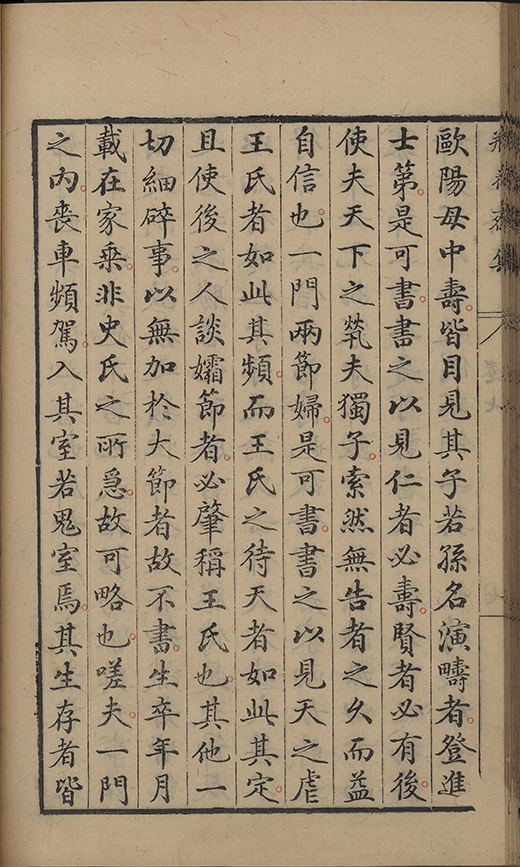 瓶花齋集
歐陽母中壽皆目見其子若孫名演疇者登進
士第是可書書之以見仁者必壽賢者必有後
使夫天下之煢夫獨子索然無告者之久而益
自信也一門兩節婦是可書書之以見天之虐
王氏者如此其頻而王氏之待天者如此其定
且使後之人談孀節者必肇稱王氏也其他一
切細碎事以無加於大節者故不書生卒年月
載在家乘非史氏之所急故可略也嗟夫一門
之內喪車頻駕入其室若鬼室焉其生存者皆